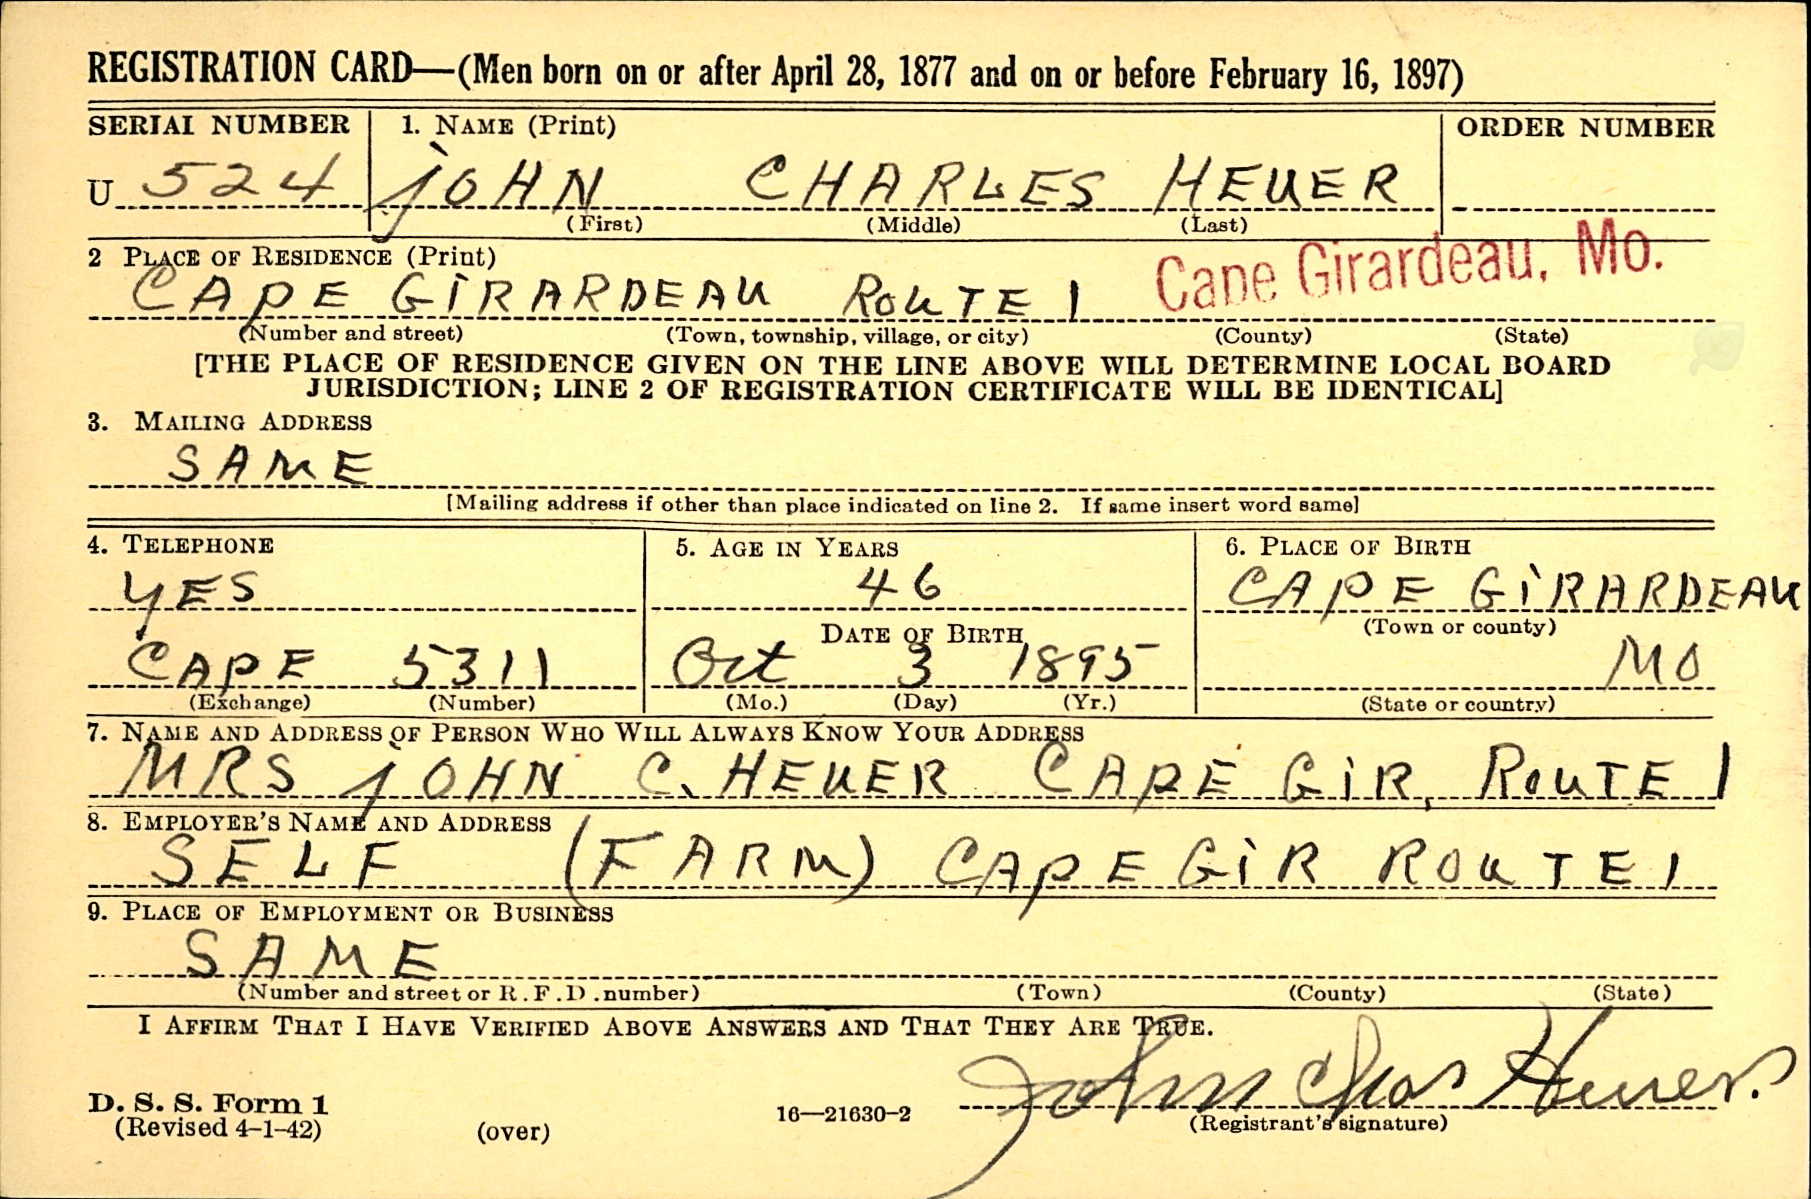 REGISTRATION CARD—(Men born on or after April 28, 1877 and on or before February 16, 1897)
SERIAL NUMBER 1. NAME (Print) ORDER NUMBER
U 524 JOHN CHARLES HEUER
(First) (Middle) (Last)
2 PLACE OF RESIDENCE (Print)
CAPE GIRARDEAU ROUTE 1 Cape Girardeau, Mo.
(Number and street) (Town, township, village, or city) (County) (State)
[THE PLACE OF RESIDENCE GIVEN ON THE LINE ABOVE WILL DETERMINE LOCAL BOARD
JURISDICTION; LINE 2 OF REGISTRATION CERTIFICATE WILL BE IDENTICAL]
3. MAILING ADDRESS
SAME
[Mailing address if other than place indicated on line 2. If same insert word same]
4. TELEPHONE 5. AGE IN YEARS 6. PLACE OF BIRTH
YES 46 CAPE GIRARDEAU
DATE OF BIRTH (Town or county)
CAPE 5311 Oct 3 1895 MO
(Exchange) (Number) (Mo.) (Day) (Yr.) (State or country)
7. NAME AND ADDRESS OF PERSON WHO WILL ALWAYS KNOW YOUR ADDRESS
MRS JOHN C. HEUER CAPE GIR, ROUTE 1
8. EMPLOYER'S NAME AND ADDRESS
SELF (FARM) CAPE GIR ROUTE 1
9. PLACE OF EMPLOYMENT OR BUSINESS
SAME
(Number and street or R.F.D. number) (Town) (County) (State)
I AFFIRM THAT I HAVE VERIFIED ABOVE ANSWERS AND THAT THEY ARE TRUE.
John Chas Heuer.
D. S. S. Form 1
(Revised 4-1-42) (over) 16—21630-2 (Registrant's signature)